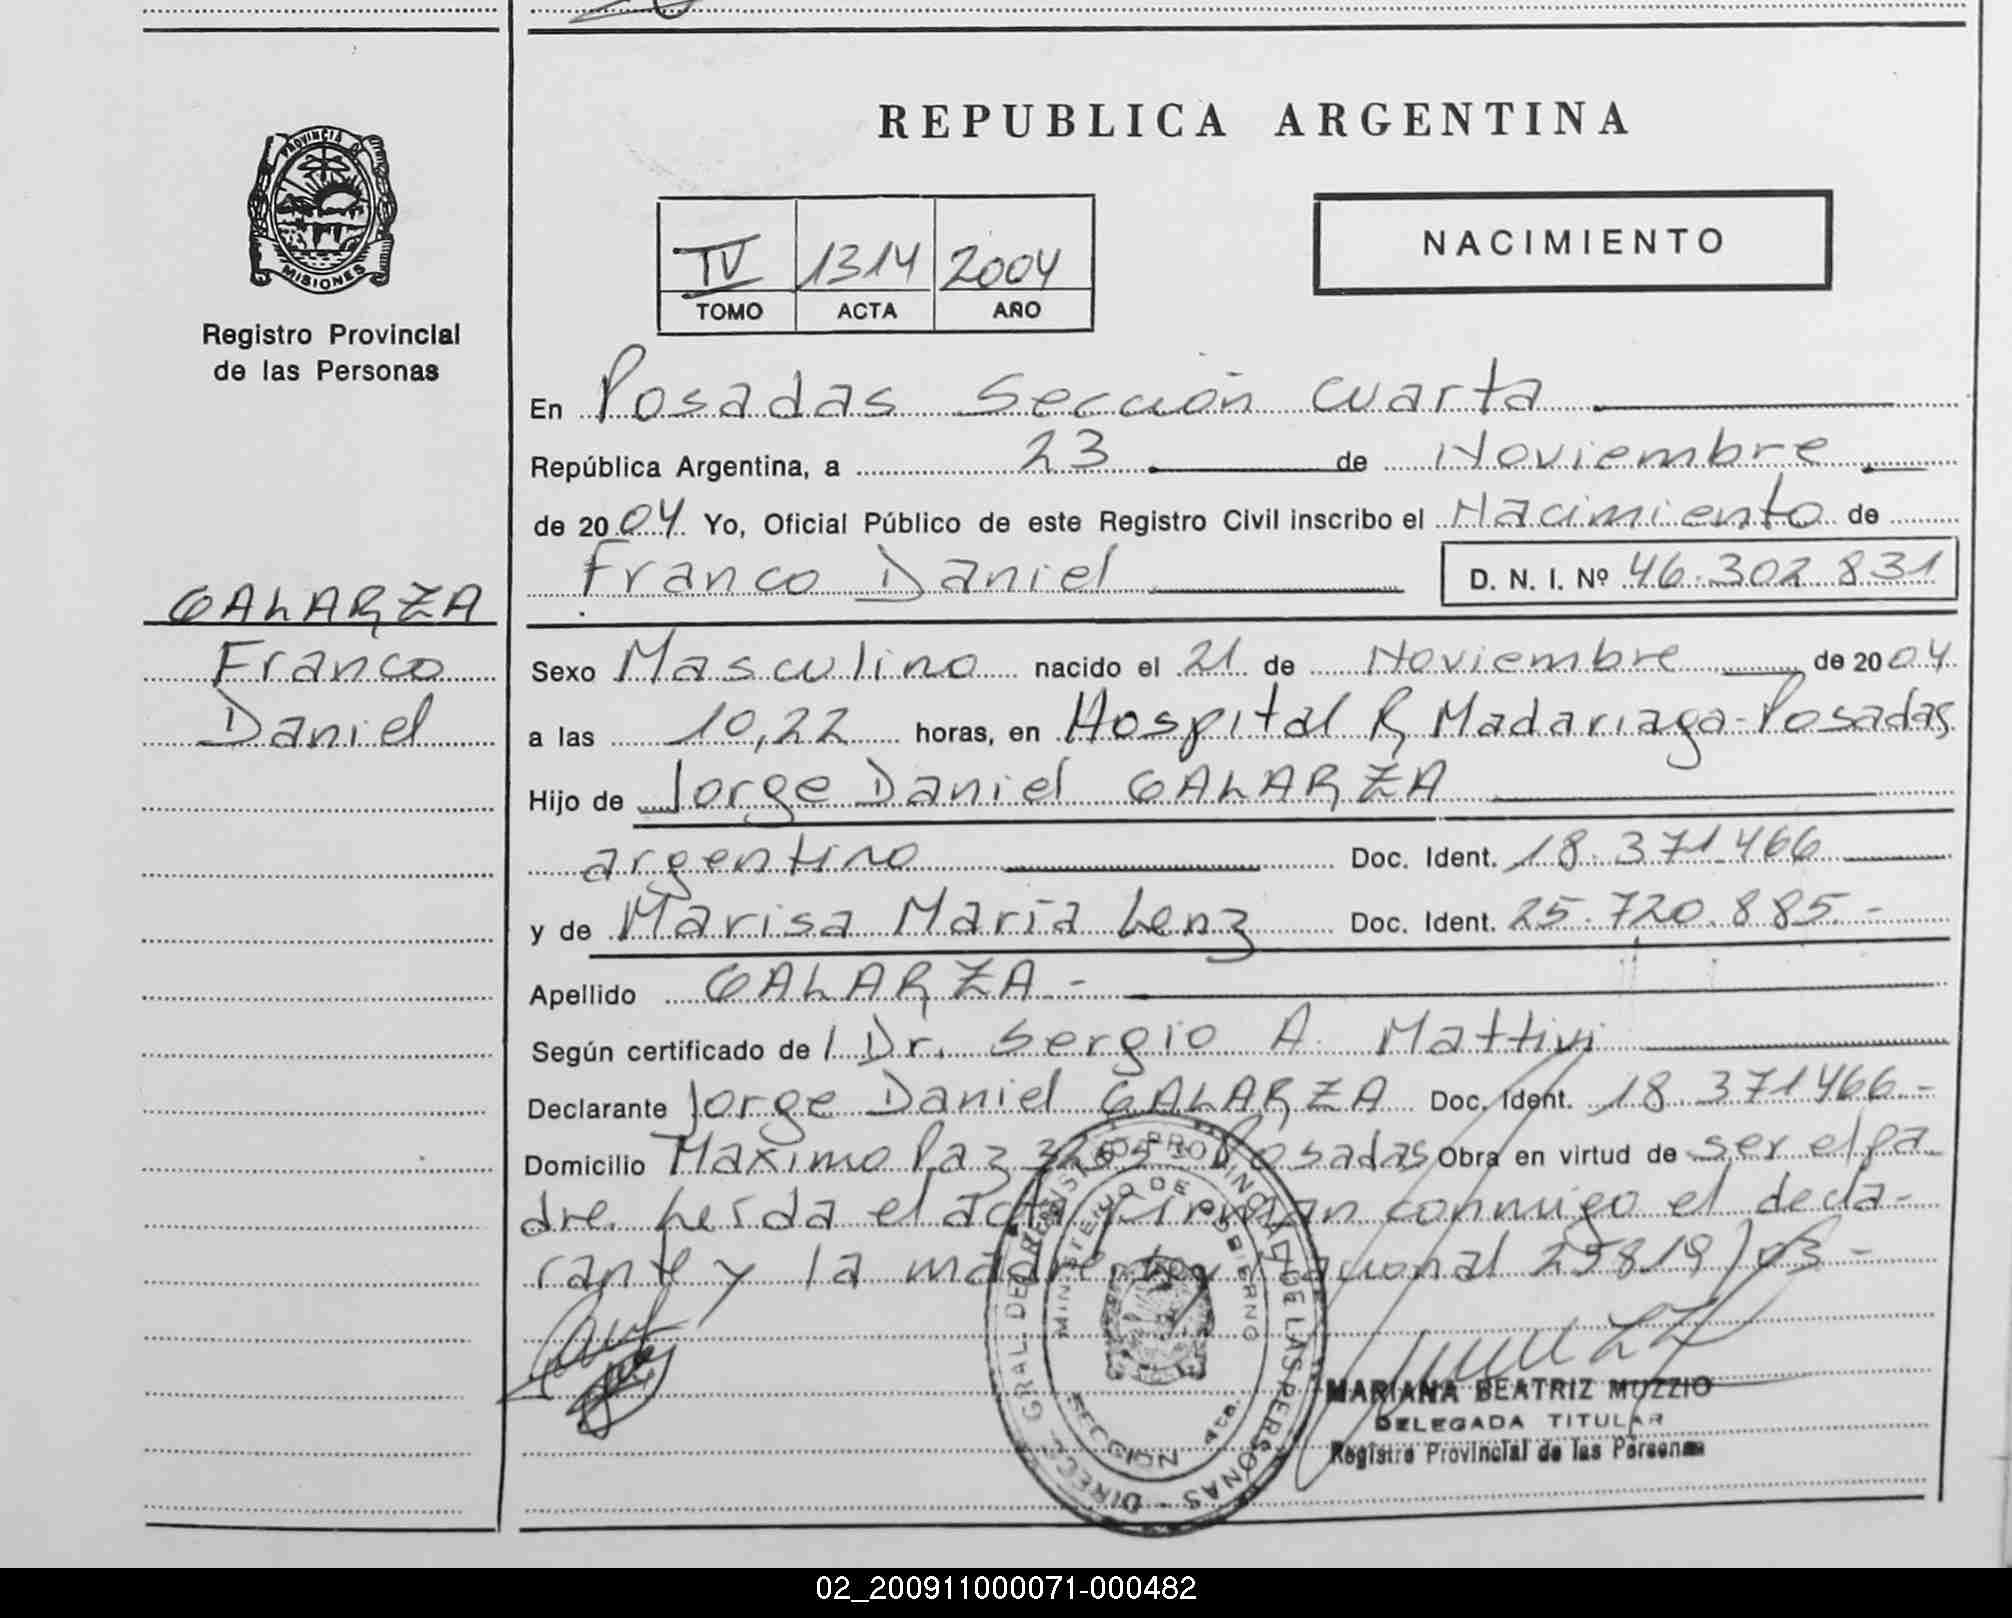 REPUBLICA ARGENTINA
PROVINCIA DE
MISIONES
Registro Provincial
de las Personas
IV 1314 2004
TOMO ACTA AÑO
NACIMIENTO
En Posadas Sección cuarta
República Argentina, a 23 de Noviembre
de 2004 Yo, Oficial Público de este Registro Civil inscribo el Nacimiento de
Franco Daniel D. N. I. Nº 46.302.831
GALARZA
Franco
Daniel
Sexo Masculino nacido el 21 de Noviembre de 2004
a las 10,22 horas, en Hospital R. Madariaga-Posadas
Hijo de Jorge Daniel GALARZA
argentino Doc. Ident. 18.371.466
y de Marisa María Lenz Doc. Ident. 25.720.885.-
Apellido GALARZA -
Según certificado de l Dr. Sergio A. Mattivi
Declarante Jorge Daniel GALARZA Doc. Ident. 18.371466.-
Domicilio Maximo Paz Posadas Obra en virtud de ser el pa
dre. Leída el acta firman conmigo el decla-
rante y la madre Ley Nacional 25819/03-
DIRECC. GRAL. DEL REGISTRO PROVINCIAL DE LAS PERSONAS
MINISTERIO DE GOBIERNO
SECCION 4ta.
MARIANA BEATRIZ MUZZIO
DELEGADA TITULAR
Registro Provincial de las Personas
02_200911000071-000482